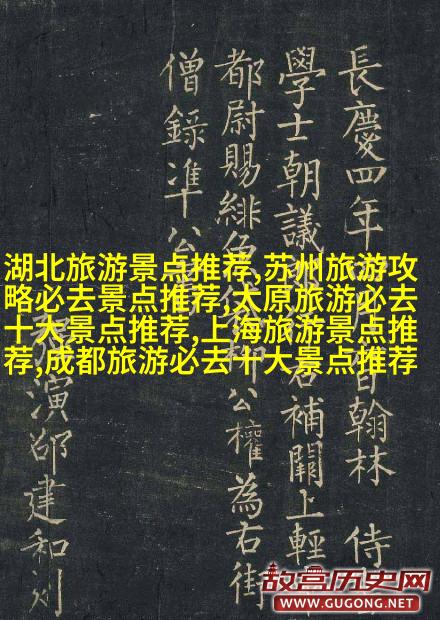 長慶四年 日翰林 侍
學士朝議 補闕上輕
都尉賜緋 公權為右街
僧錄准公
演邵建和刻
湖北旅游景点推荐,苏州旅游攻
略必去景点推荐,太原旅游必去
十大景点推荐,上海旅游景点推
荐,成都旅游必去十大景点推荐
故宫历史网
WWW.GUGONG.NET